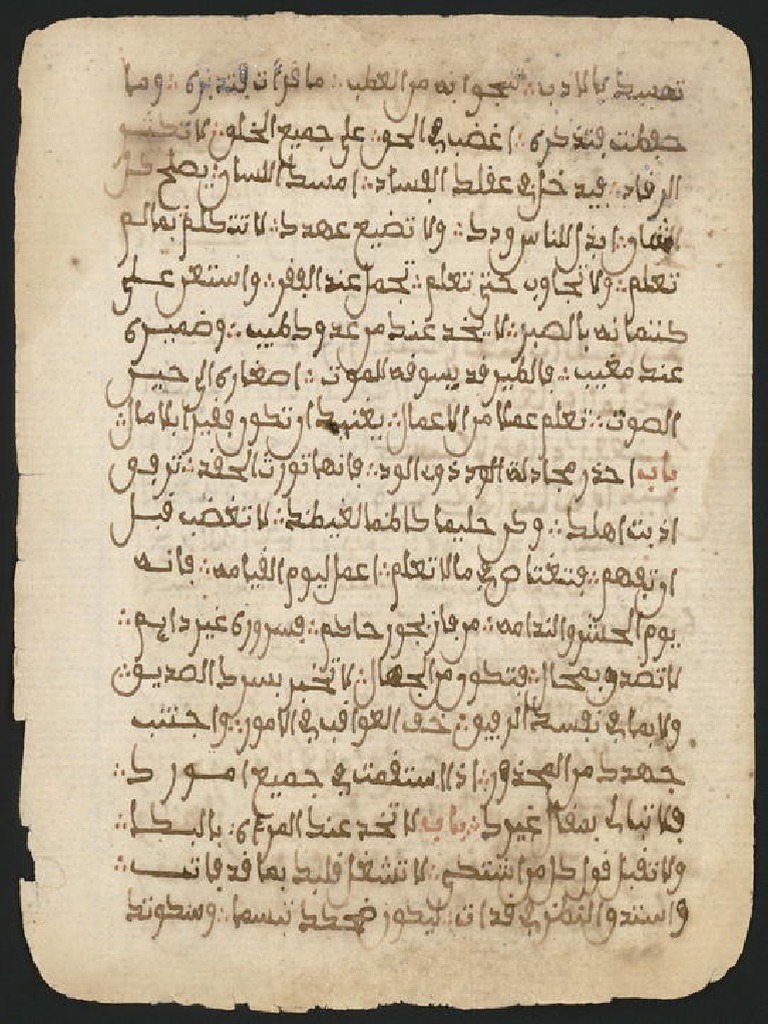 نفسك بالادب ∴ تنجوا به من العطب ∴ ما قرات فتدبره ∴ وما
حفظت فتذكره ∴ اغضب في الحق ∴ على جميع الخلق ∴ لا تكثر
الرقاد ∴ فيدخل في عقلك الفساد ∴ امسك اللسان ∴ يصلح لك
الشان ∴ ابذل للناس ودك ∴ ولا تضيع عهدك ∴ لا تتكلم بما لم
تعلم ∴ ولا تجاوب حتى تعلم ∴ تجمل عند الفقر ∴ واستعن على
كتمانه بالصبر ∴ لا يكن عندك من عدوك طبيب ∴ وضميره
عنك مغيب ∴ فالطير قد يسوقه للموت ∴ اصغاره الى حس
الصوت ∴ تعلم عملا من الاعمال ∴ يغنيك ان تكون فقيرا بلا مال ∴
باب احذر مجادلة الود ذوى الود ∴ فانها تورث الحقد ∴ ترفق
اذ بت اهلك ∴ وكن حليما كاظما لغيظك ∴ لا تغضب قبل
ان تفهم ∴ فتغتاض في ما لا تعلم ∴ اعمل ليوم القيامه ∴ فانه
يوم الحشر والندامه ∴ من فاز بجور حاكم ∴ فسروره غير دايم ∴
لا تصدق بمحال ∴ فتكون من الجهال ∴ لا تخبر بسرك الصديق ∴
ولا بما في نفسك الرفيق ∴ خف العواقب في الامور ∴ واجتنب
جهدك من المحذور ∴ اذا استقمت في جميع امورك ∴
فلا تبالى بمقال غيرك ∴ باب لا تكن عند المرءة ∴ بالبكا ∴
ولا تقبل قول كل من اشتكى ∴ لا تشغل قلبك بما قد فات ∴
واستدرك النظر في قد ات ∴ ليكون ضحكك تبسما ∴ وسكوتك